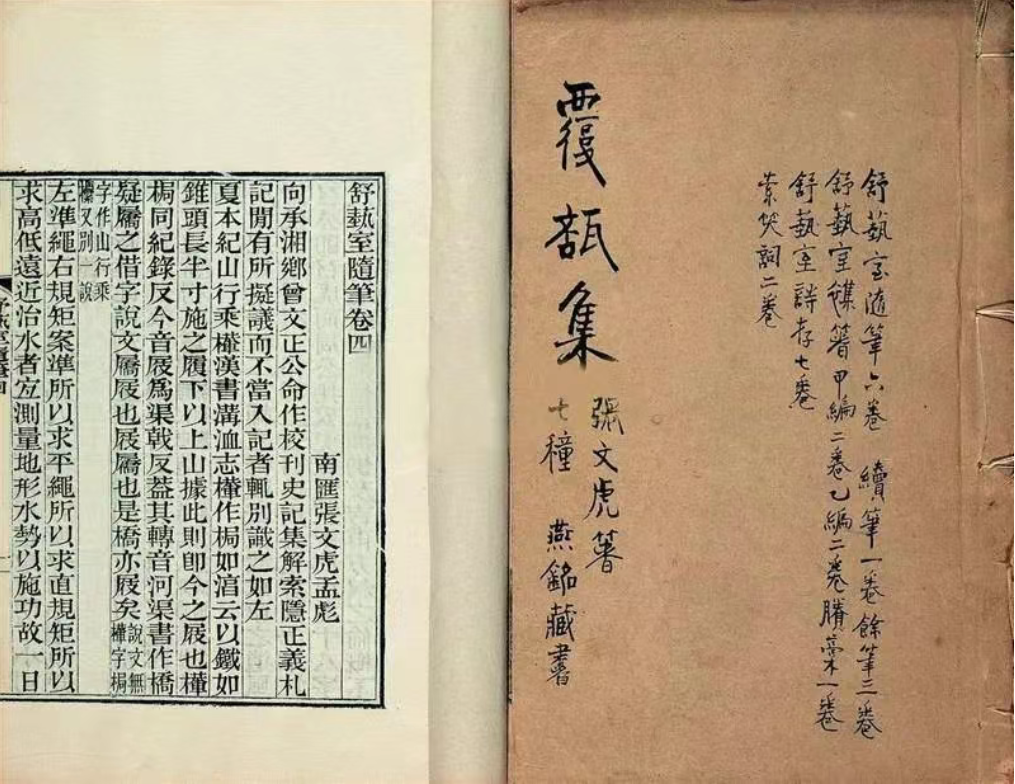 舒藝室隨筆六卷 續筆一卷 餘筆三卷
舒藝室襍箸甲編二卷乙編二卷賸稾一卷
舒藝室詩存七卷
索笑詞二卷
覆瓿集
張文虎箸
七種 燕銘藏書
舒藝室隨筆卷四
南匯張文虎孟彪
向承湘鄉曾文正公命作校刊史記集解索隱正義札
記閒有所擬議而不當入記者輒別識之如左
夏本紀山行乘檋漢書溝洫志檋作梮如湻云以鐵如
錐頭長半寸施之履下以上山據此則卽今之屐也檋
梮同紀錄反今音屐爲渠戟反葢其轉音河渠書作橋
疑屩之借字說文屩屐也屐屩也是橋亦屐矣說文無檋字梮
字作山行乘欙又別一說
左準繩右規矩案準所以求平繩所以求直規矩所以
求高低遠近治水者宐測量地形水勢以施功故一日